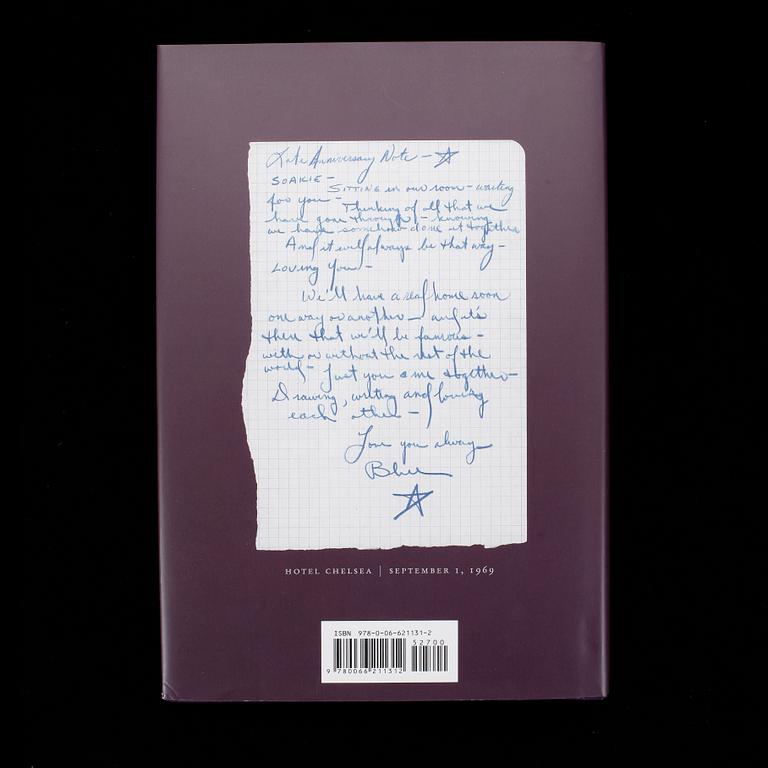 Late Anniversary Note – ☆
SOAKIE –
SITTING in our room – waiting
for you – Thinking of all that we
have gone through – knowing
we have somehow done it together
And it will always be that way –
LOVING You –
We'll have a real home soon
one way or another – and it's
there that we'll be famous –
with or without the rest of the
world – Just you & me together –
Drawing, writing and loving
each other –
Love you always
Blue
☆
HOTEL CHELSEA | SEPTEMBER 1, 1969
ISBN 978-0-06-621131-2
52700
9 780066 211312